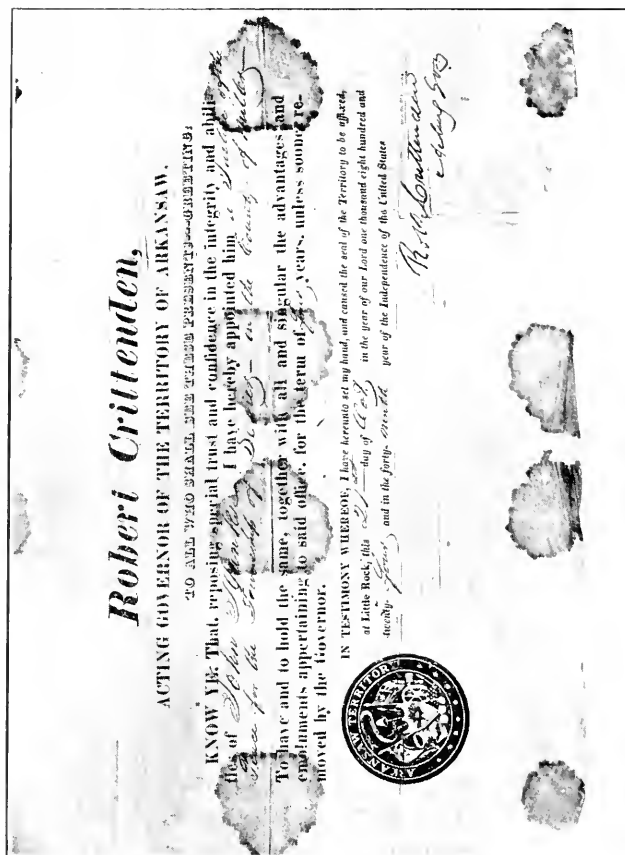 Robert Crittenden,
ACTING GOVERNOR OF THE TERRITORY OF ARKANSAW.
TO ALL WHO SHALL SEE THESE PRESENTS—GREETING:
KNOW YE: That, reposing special trust and confidence in the integrity and abili-
ties of John I have hereby appointed him a Justice of the
Peace for the Township of in the County of
To have and to hold the same, together with all and singular the advantages and
emoluments appertaining to said office, for the term of years, unless sooner re-
moved by the Governor.
IN TESTIMONY WHEREOF, I have hereunto set my hand, and caused the seal of the Territory to be affixed,
at Little Rock, this 21st day of in the year of our Lord one thousand eight hundred and
twenty-four and in the forty-ninth year of the Independence of the United States
Crittenden
Acting Gov
ARKANSAW TERRITORY